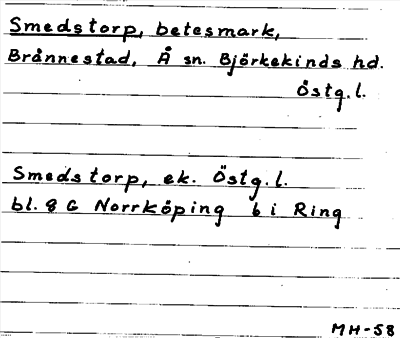 Smedstorp, betesmark,
Brånnestad, Å sn. Björkekinds hd.
Östg.l.
Smedstorp, ek. Östg.l.
bl. 8 G Norrköping 6 i Ring
MH-58